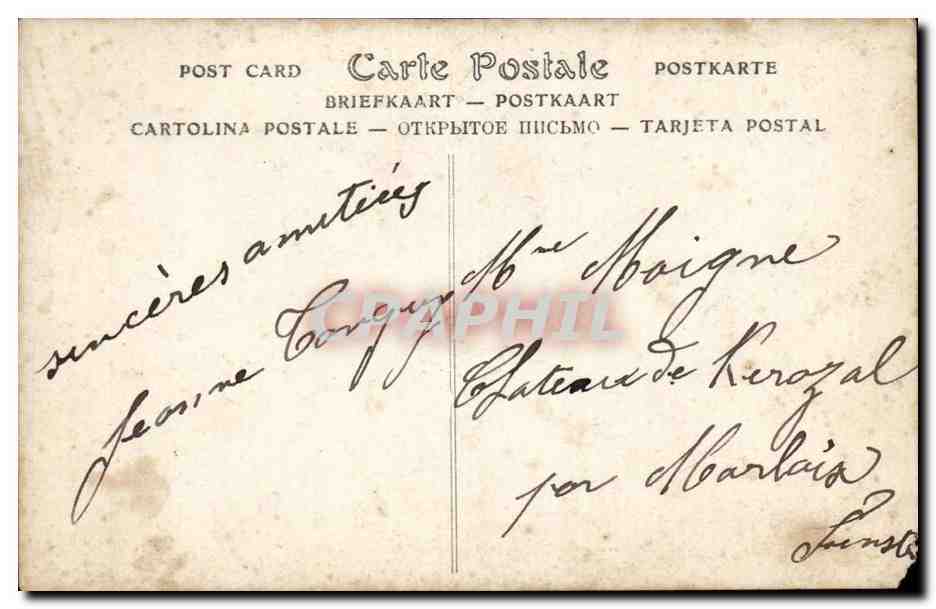 POST CARD Carte Postale POSTKARTE
BRIEFKAART — POSTKAART
CARTOLINA POSTALE — ОТКРЫТОЕ ПИСЬМО — TARJETA POSTAL
sincères amitiées
Jeanne Tanguy
Mme Moigne
Chateau de Kerozal
par Morlaix
CPAPHIL